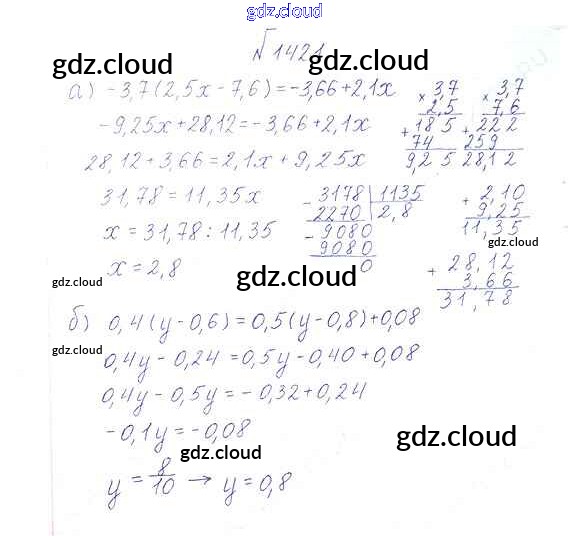 gdz.cloud
№1421
gdz.cloud
gdz.cloud
а) -3,7(2,5x-7,6)=-3,66+2,1x
-9,25x+28,12=-3,66+2,1x
28,12+3,66=2,1x+9,25x
31,78=11,35x
x=31,78:11,35
x=2,8
× 3,7
2,5
+ 185
74
9,25
× 3,7
7,6
+ 222
259
28,12
- 3178 | 1135
2270 | 2,8
- 9080
9080
0
+ 2,10
9,25
11,35
gdz.cloud
+ 28,12
3,66
31,78
gdz.cloud
gdz.cloud
б) 0,4(y-0,6)=0,5(y-0,8)+0,08
gdz.cloud
0,4y-0,24=0,5y-0,40+0,08
0,4y-0,5y=-0,32+0,24
-0,1y=-0,08
gdz.cloud
gdz.cloud
y=8/10 → y=0,8
gdz.cloud